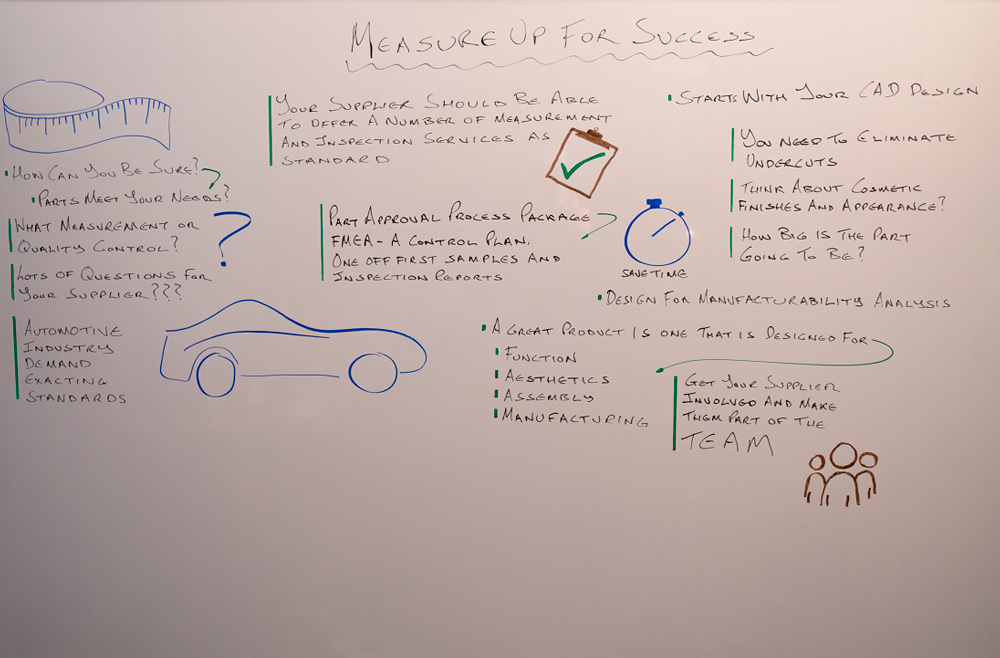 MEASURE UP FOR SUCCESS
HOW CAN YOU BE SURE?
PARTS MEET YOUR NEEDS?
WHAT MEASUREMENT OR
QUALITY CONTROL?
?
LOTS OF QUESTIONS FOR
YOUR SUPPLIER???
AUTOMOTIVE
INDUSTRY
DEMAND
EXACTING
STANDARDS
YOUR SUPPLIER SHOULD BE ABLE
TO OFFER A NUMBER OF MEASUREMENT
AND INSPECTION SERVICES AS
STANDARD
PART APPROVAL PROCESS PACKAGE
FMEA - A CONTROL PLAN.
ONE OFF FIRST SAMPLES AND
INSPECTION REPORTS
SAVE TIME
STARTS WITH YOUR CAD DESIGN
YOU NEED TO ELIMINATE
UNDERCUTS
THINK ABOUT COSMETIC
FINISHES AND APPEARANCE?
HOW BIG IS THE PART
GOING TO BE?
DESIGN FOR MANUFACTURABILITY ANALYSIS
A GREAT PRODUCT IS ONE THAT IS DESIGNED FOR
FUNCTION
AESTHETICS
ASSEMBLY
MANUFACTURING
GET YOUR SUPPLIER
INVOLVED AND MAKE
THEM PART OF THE
TEAM